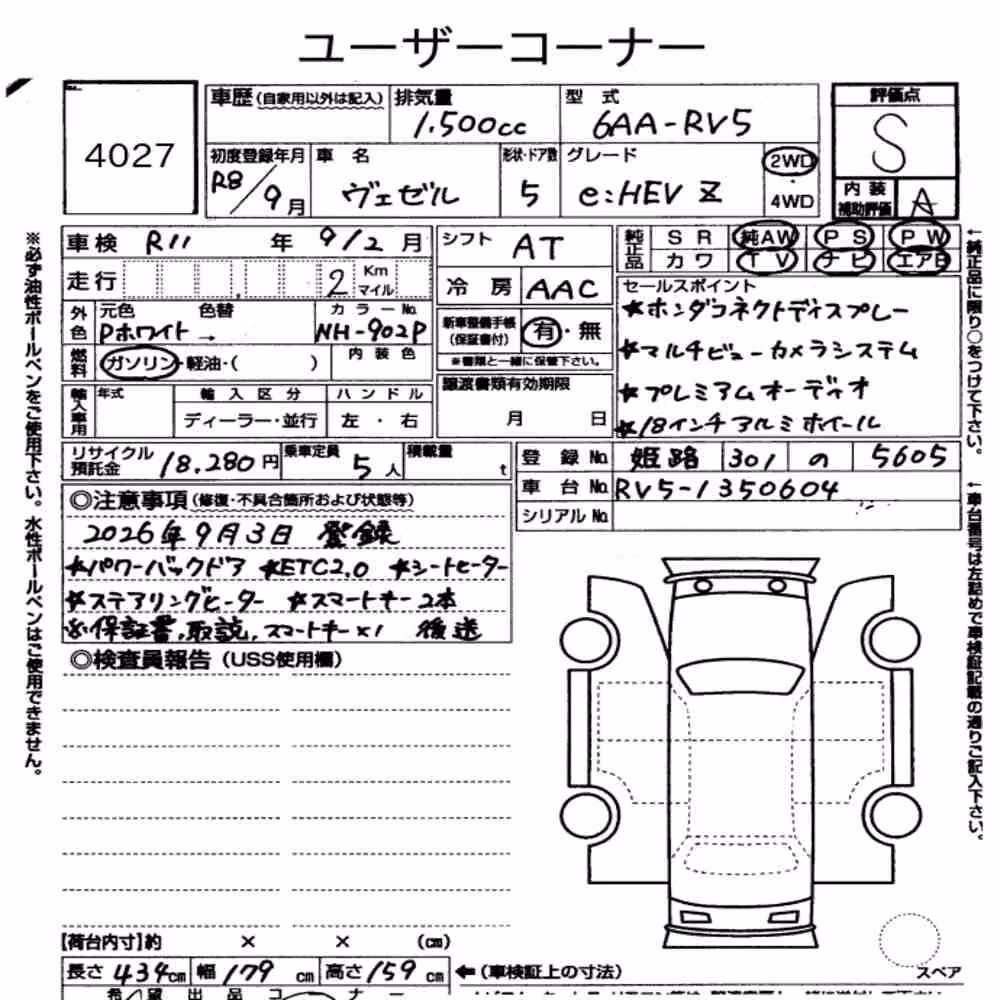 ユーザーコーナー
4027
車歴 (自家用以外は記入)
排気量
1.500cc
型 式
6AA-RV5
評価点
S
初度登録年月
R8/9月
車 名
ヴェゼル
形状・ドア数
5
グレード
e:HEV Z
2WD
・
4WD
内 装
補助評価
A
車検 R11 年 9/2 月
シフト AT
純正品
SR 純AW PS PW
カワ TV ナビ エアB
走行 2 Km
マイル
冷 房 AAC
セールスポイント
*ホンダコネクトディスプレー
*マルチビューカメラシステム
*プレミアムオーディオ
*18インチアルミホイール
外色
元色 色替 カラーNo.
Pホワイト → NH-902P
新車整備手帳
(保証書付)
有・無
※書類と一緒に保管下さい。
燃料
ガソリン・軽油・( )
内 装 色
譲渡書類有効期限
月 日
輸入車用
年式
輸 入 区 分
ハ ン ド ル
ディーラー・並行
左 ・ 右
リサイクル
預託金
18.280円
乗車定員
5人
積載量
t
登 録 No. 姫路 301 の 5605
車 台 No. RV5-1350604
シリアル No.
◎注意事項 (修復・不具合箇所および状態等)
2026年9月3日 登録
*パワーバックドア *ETC2.0 *シートヒーター
*ステアリングヒーター *スマートキー2本
※保証書,取説,スマートキー×1 後送
◎検査員報告 (USS使用欄)
※必ず油性ボールペンをご使用下さい。水性ボールペンはご使用できません。
←純正品に限り○をつけて下さい。
←車台番号は左詰めで車検証記載の通りご記入下さい。
【荷台内寸】約 × × (cm)
長さ 434cm 幅 179cm 高さ 159cm
←(車検証上の寸法)
スペア
希 望 出 品 コ ー ナ ー